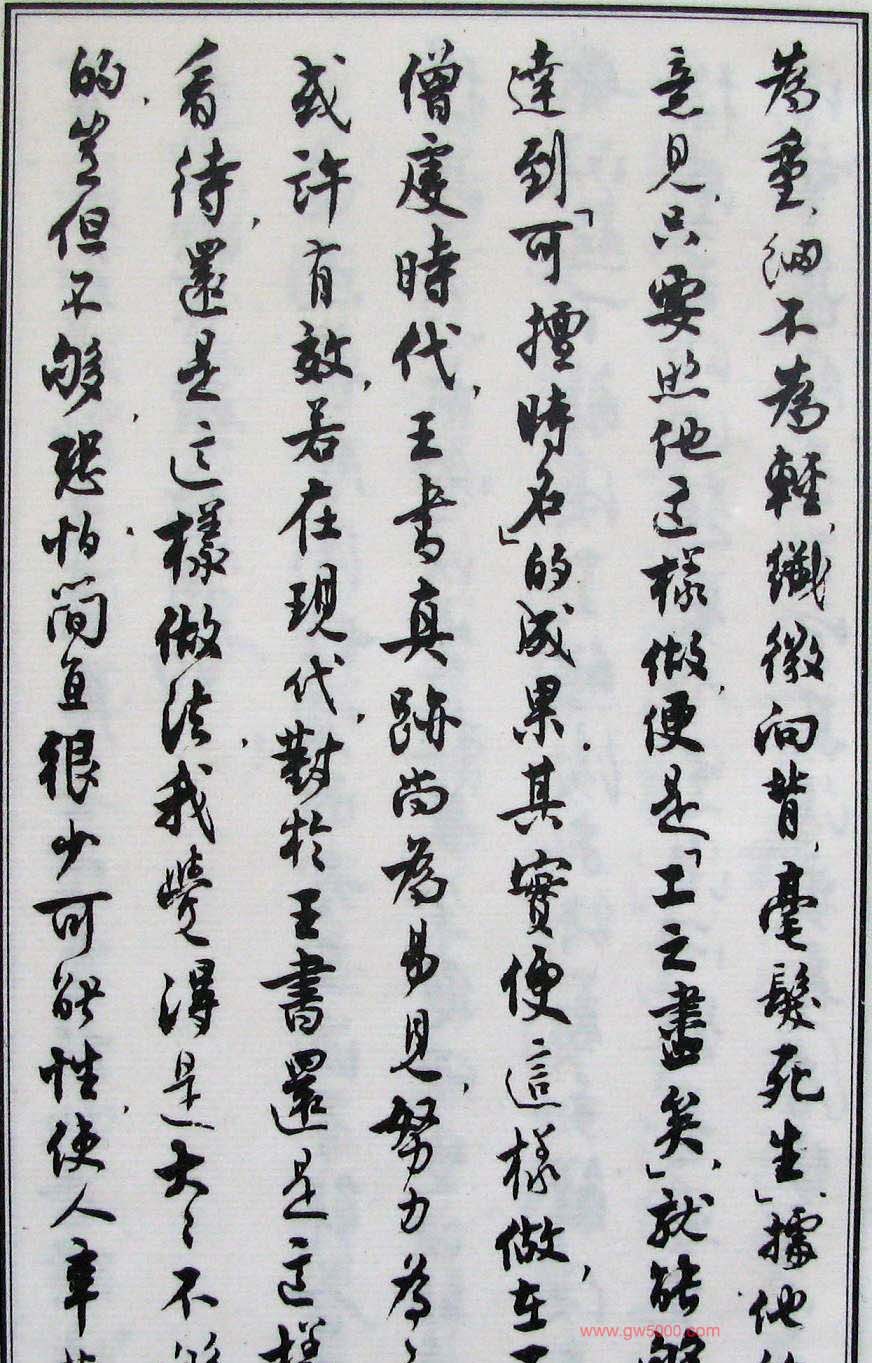 為重,細不為輕,纖微向背,毫髮死生」,據他
意見,只要照他這樣做,便是「工之盡矣」,就能
達到「可擅時名」的成果.其實便這樣做,在
僧虔時代,王書真跡尚為易見,努力為之
或許有效,若在現代,對於王書還是這樣
看待,還是這樣做法,我覺得是大大不
的,豈但不够,恐怕.簡直很少可能性,使人率
www.gw5000.com